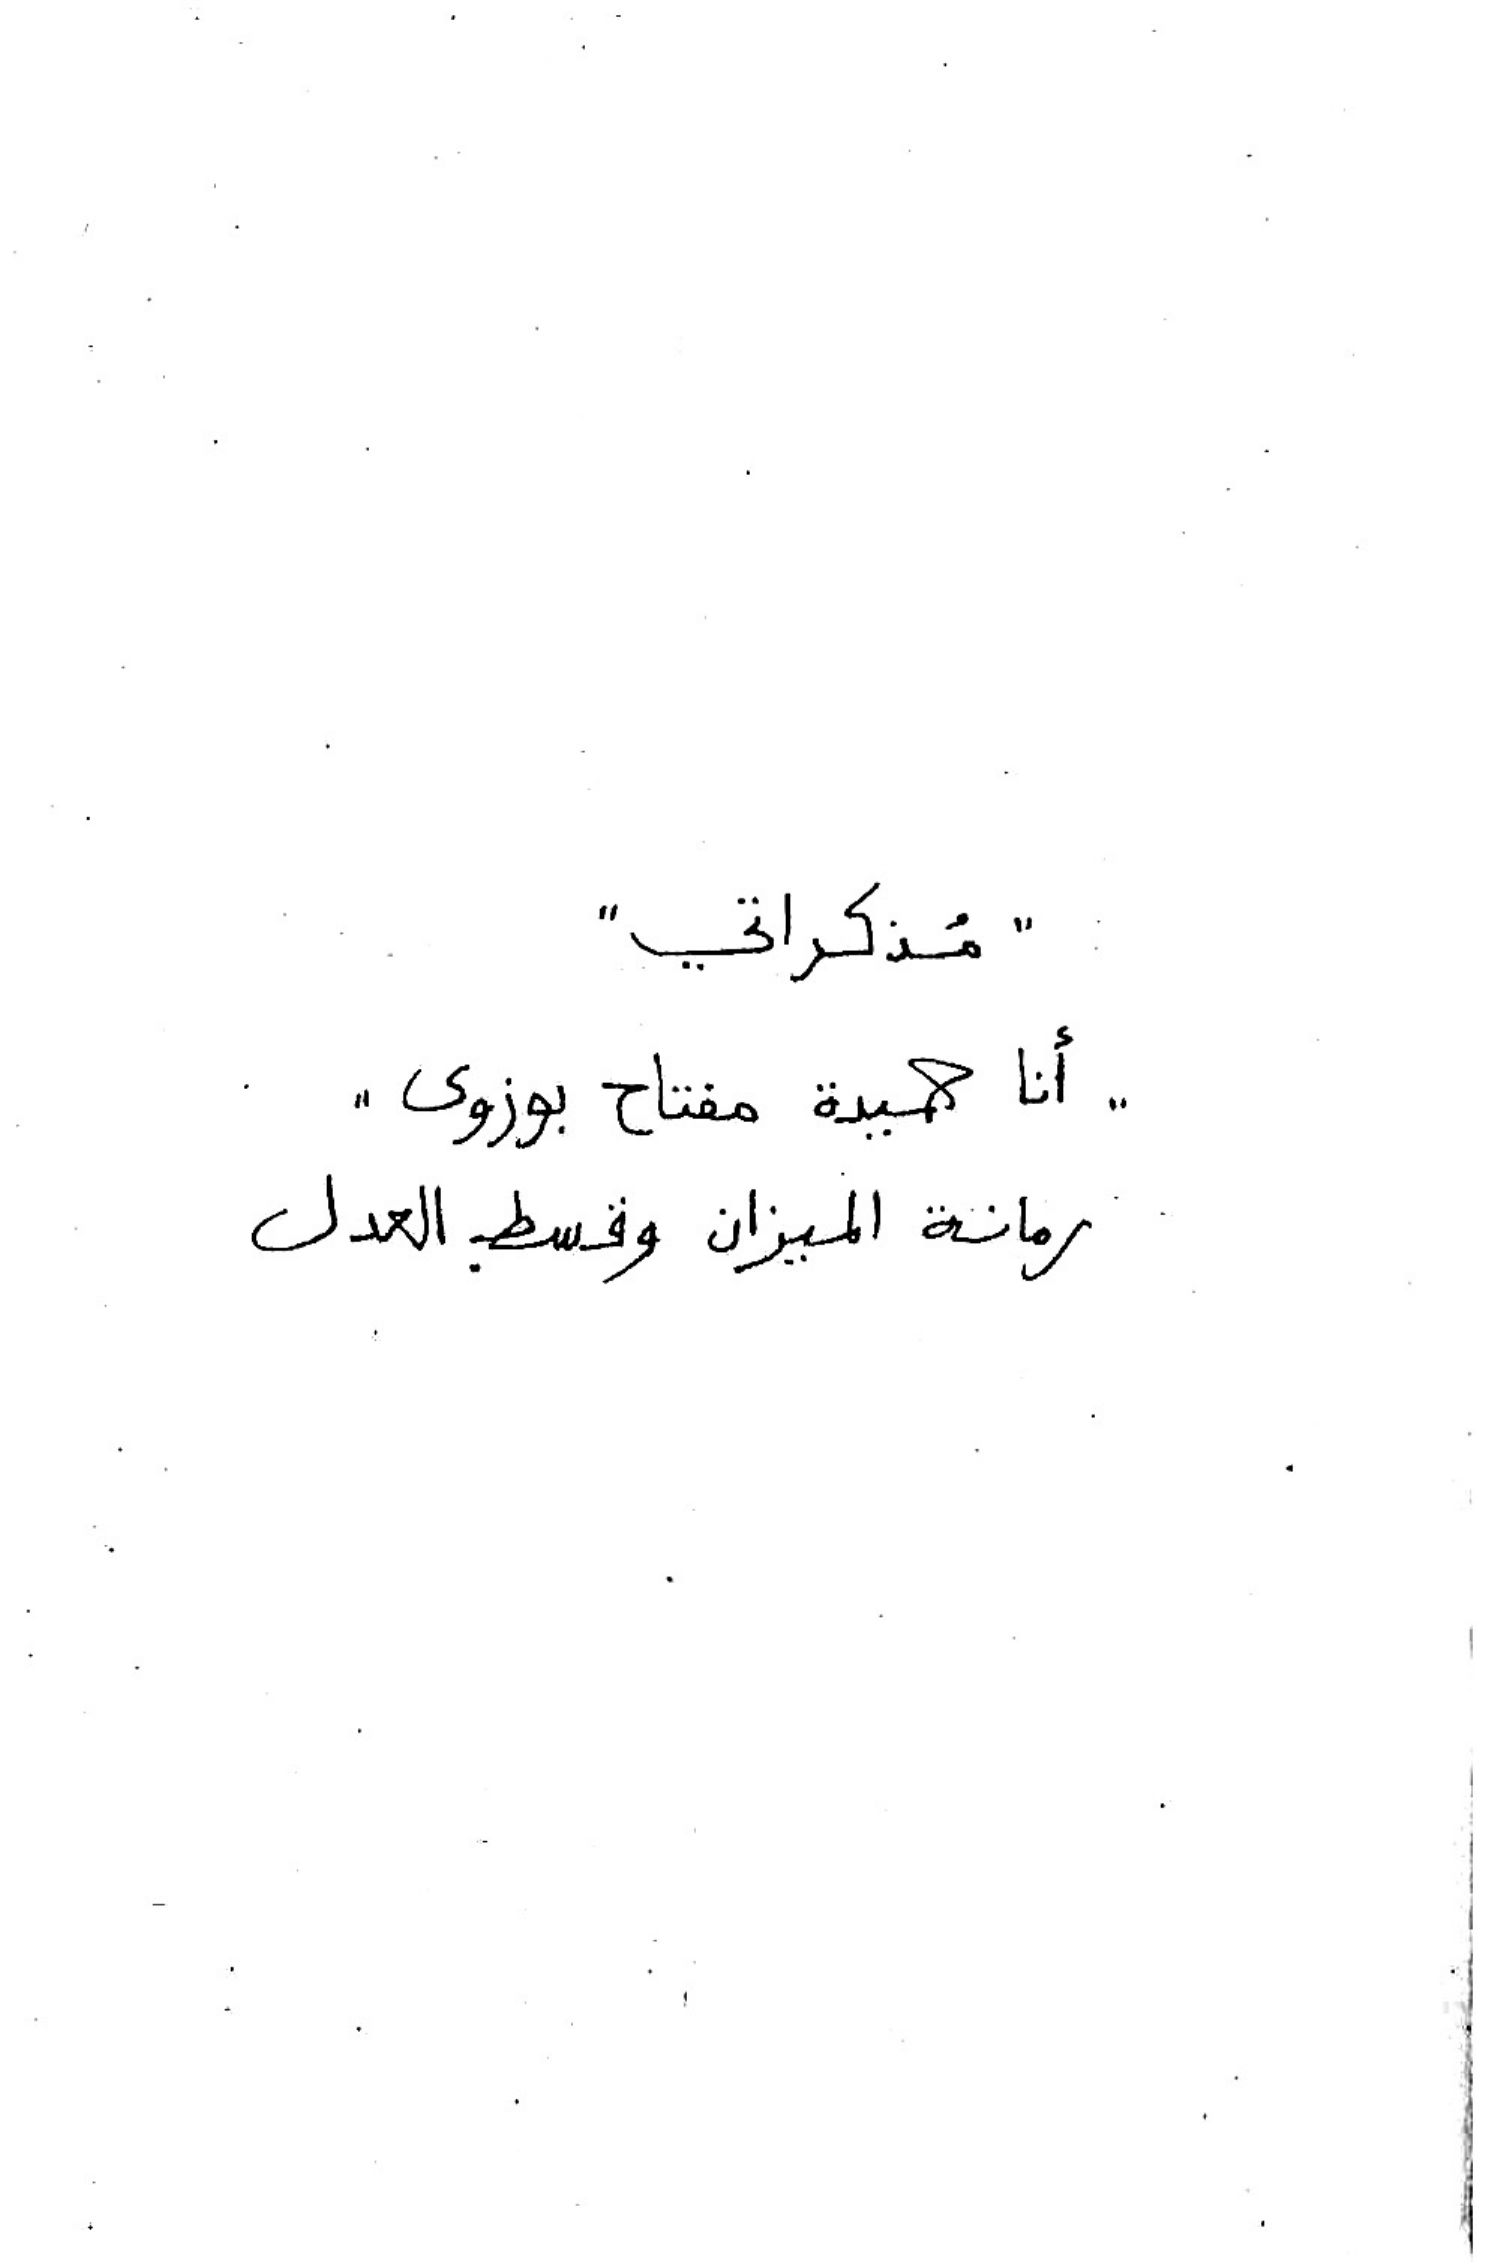 "مُذكراتي"
"أنا حميدة مفتاح بوزوى"
رمانة الميزان وقسط العدل